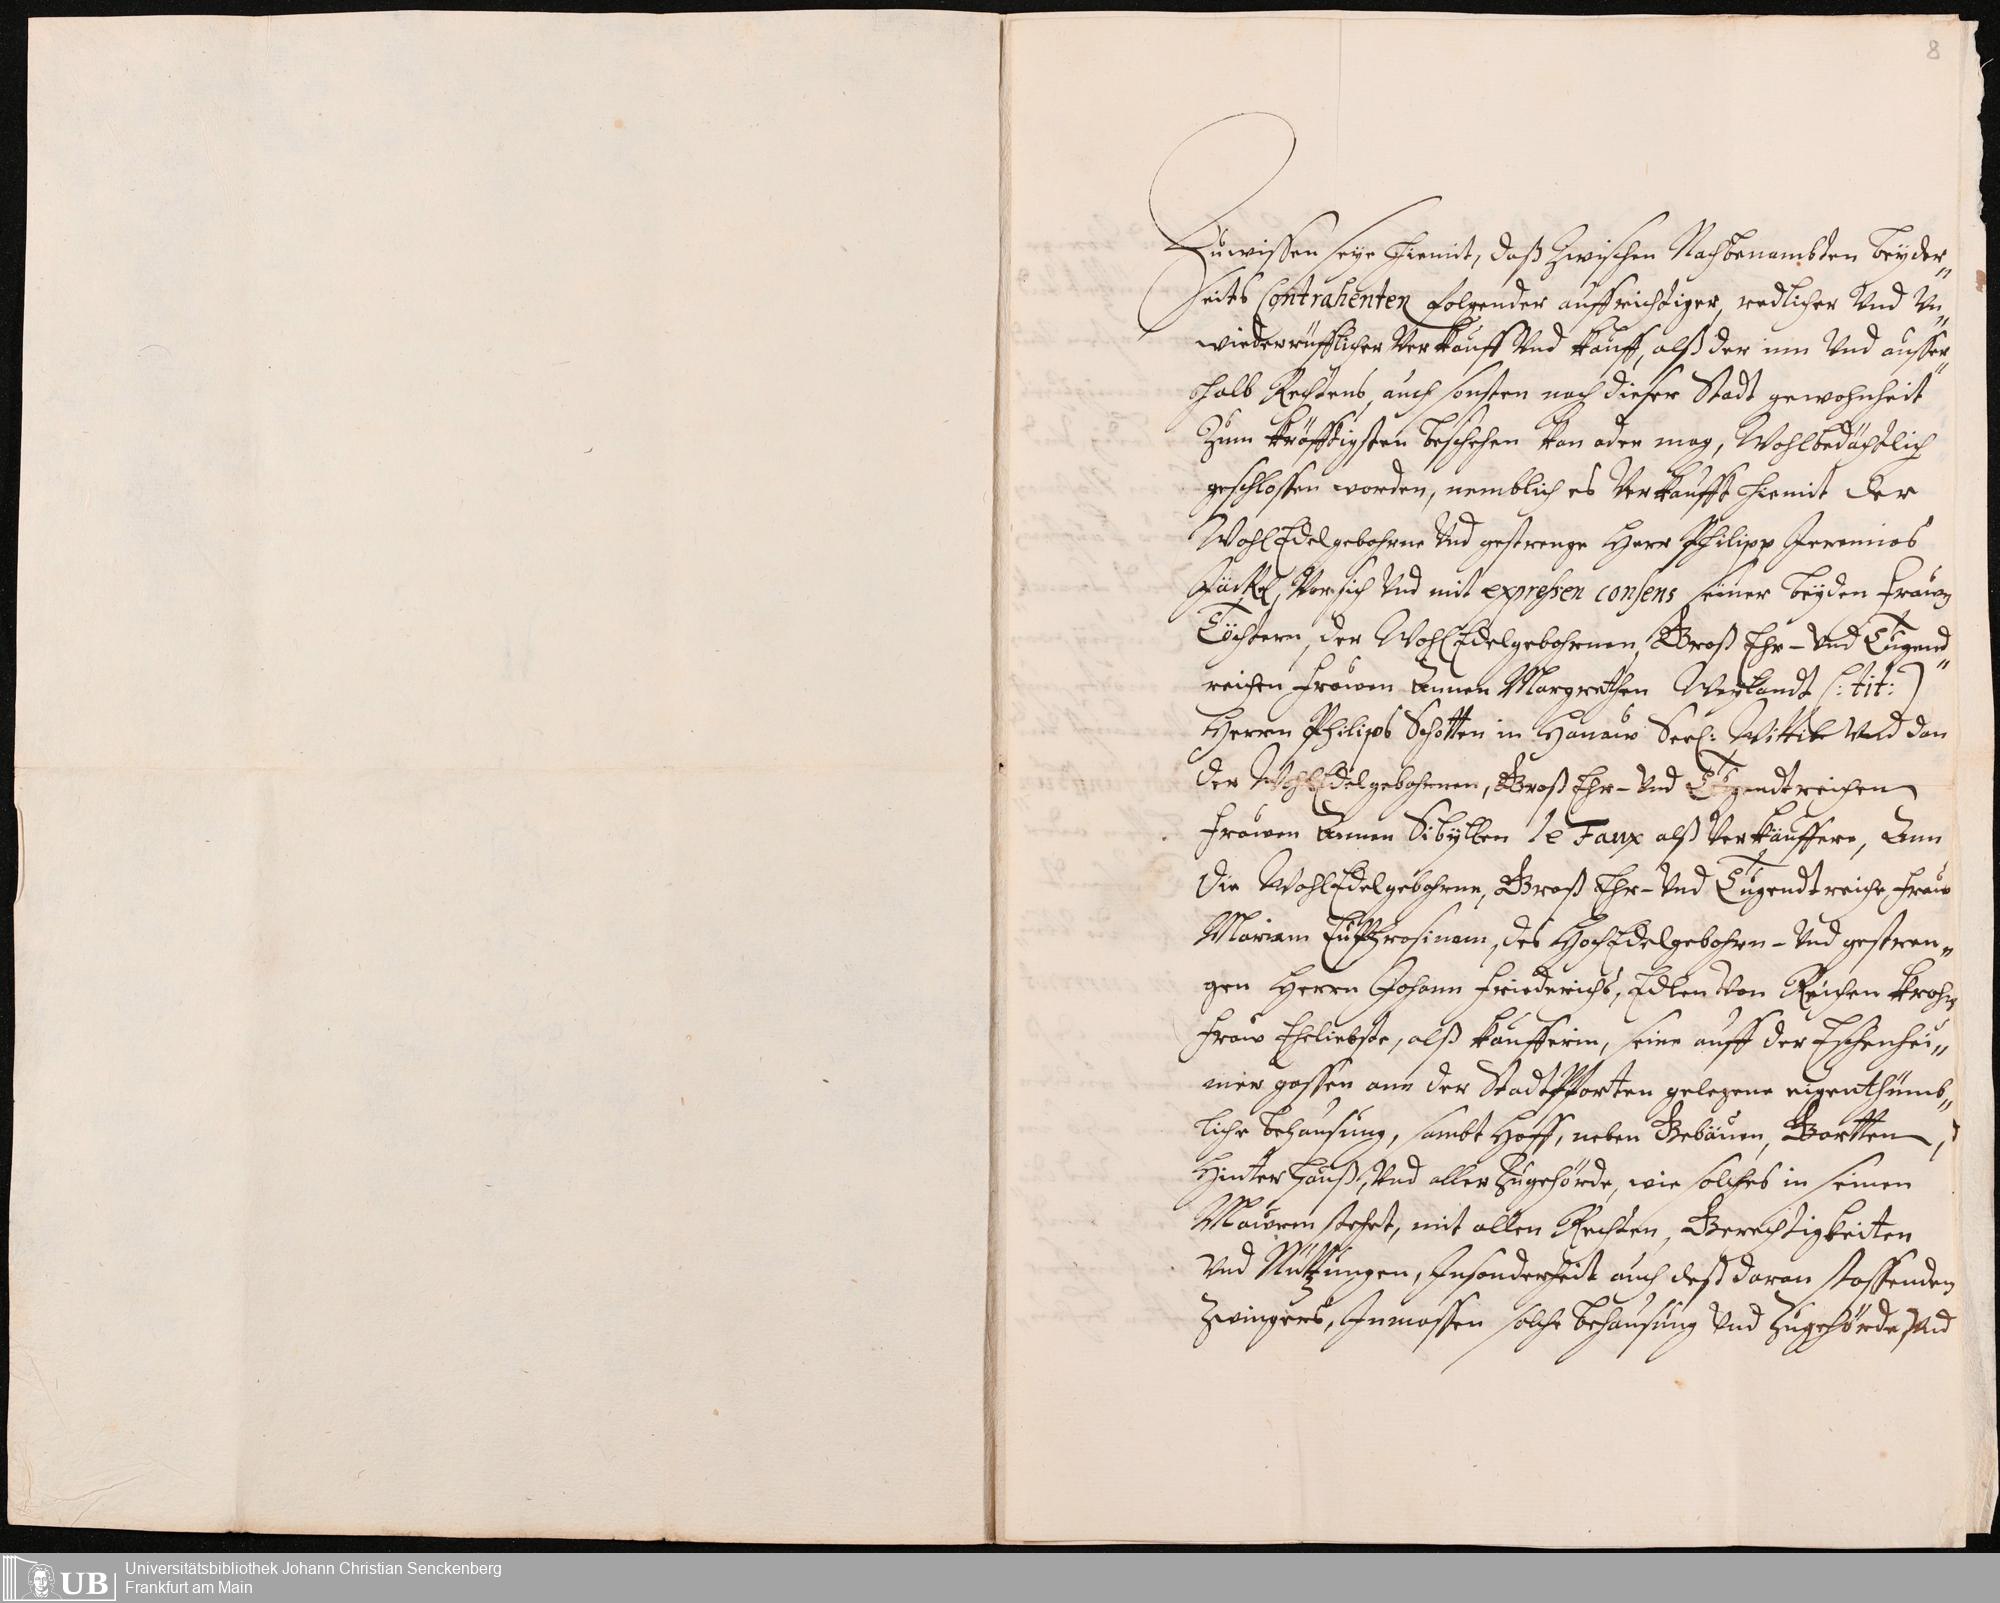 8
Zuwissen seye hiemit, daß zwischen Nachbenambsten beyder„
seits Contrahenten folgender auffrichtiger, redlicher Vnd Vn„
wiederrüfflicher Verkauff Vnd kauff, alß der inn Vnd ausser„
halb Rechtens, auch sonsten nach dieser Stadt gewohnheit
zum kräfftigsten beschehen kan oder mag, Wohlbedächtlich
geschlossen worden, nemblich es Verkaufft hiemit der
WohlEdelgebohrne Vnd gestrenge Herr Philipp Jeremias
Jäckel, Vor sich Vnd mit expressen consens seiner beyden frawen
Töchtern, der WohlEdelgebohrnen, Groß Ehr- Vnd Tugend„
reichen frawen Annen Margrethen Weylandt (: tit: )
Herrn Philips Schotten in Hanaw Seel: Wittib Vnd dan
der WohlEdelgebohrnen, Groß Ehr- Vnd Tugendtreichen
frawen Annen Sibyllen le Faux alß Verkäuffere, Ann
die WohlEdelgebohrne, Groß Ehr- Vnd Tugendtreiche fraw
Mariam Euphrosinam, des HochEdelgebohrn- Vnd gestren„
gen Herrn Johann Friederichs, Edlen Von Reichenkrohn
fraw Eheliebste, alß kaufferin, seine auff der Eschenhei„
mer gassen ann der StadtPforten gelegene eigenthümb„
liche behausung, sambt Hoff, neben Gebäuen, Gartten,
Hinterhauß, Vnd aller Zugehörde, wie solches in seinen
Mauren stehet, mit allen Rechten, Gerechtigkeiten
Vnd Nutzungen, Insonderheit auch deß daran stossenden
Zwingers, Inmassen solche behausung Vnd Zugehörde Vnd
UB
Universitätsbibliothek Johann Christian Senckenberg
Frankfurt am Main